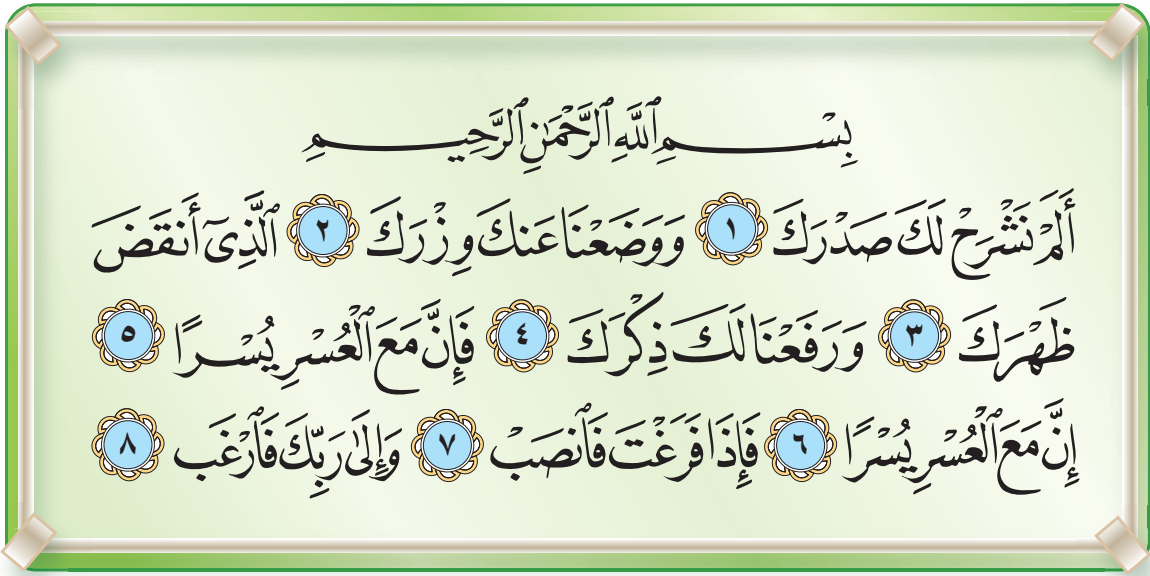 بِسْمِ ٱللَّهِ ٱلرَّحْمَٰنِ ٱلرَّحِيمِ
أَلَمْ نَشْرَحْ لَكَ صَدْرَكَ ١ وَوَضَعْنَا عَنكَ وِزْرَكَ ٢ ٱلَّذِىٓ أَنقَضَ
ظَهْرَكَ ٣ وَرَفَعْنَا لَكَ ذِكْرَكَ ٤ فَإِنَّ مَعَ ٱلْعُسْرِ يُسْرًا ٥
إِنَّ مَعَ ٱلْعُسْرِ يُسْرًا ٦ فَإِذَا فَرَغْتَ فَٱنصَبْ ٧ وَإِلَىٰ رَبِّكَ فَٱرْغَب ٨